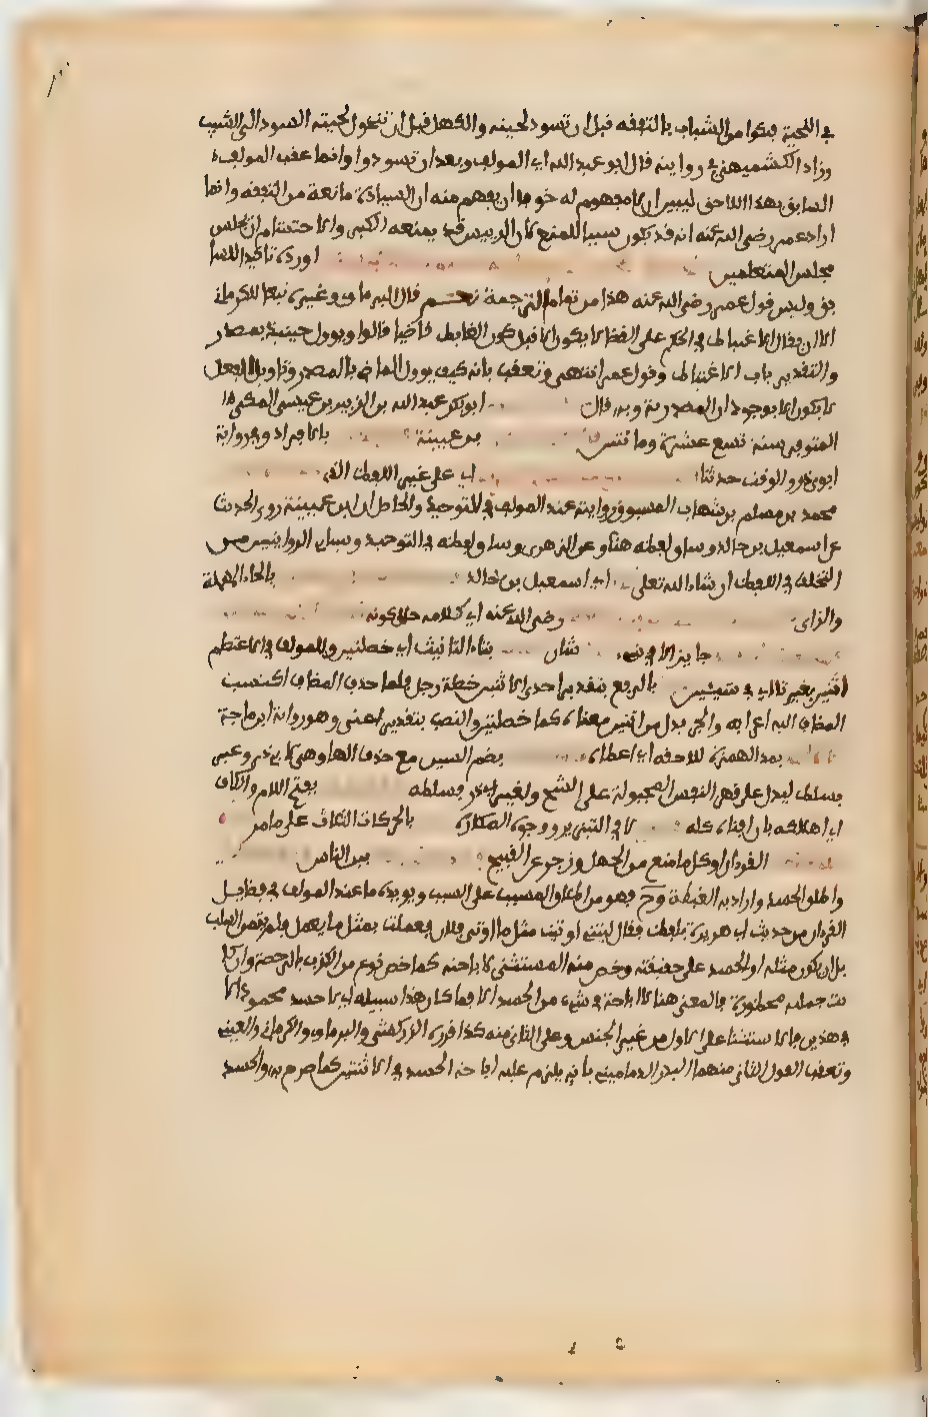 في اللحية فيكون من الشباب بالتفقه قبل ان تسود لحيته والكهل قبل ان تتحول لحيته السود الى الشيب
وزاد الكشميهني في روايته قال ابو عبد الله اي المولف وبعد ان تسودوا وانما عقب المولف
السابق بهذا اللاحق ليبين ان لا مفهوم له خوفا ان يفهم منه ان السيادة مانعة من التفقه وانما
اراد عمر رضي الله عنه انه قد يكون سببا للمنع لان الرييس قد يمنعه الكبر والاحتشام ان يجلس
مجلس المتعلمين اورده تاكيدا للسا
بق وليس قول عمر رضي الله عنه هذا من تمام الترجمة نعم قال البرماوي وغيره تبعا للكرماني
الا ان يقال الاغتباط في الحكم على القضا لا يكون الا قبل كون الغابط قاضيا قالوا ويوول حينيذ بمصدر
والتقدير باب الاغتباط وقول عمر انتهى وتعقب بانه كيف يوول الماضي بالمصدر وتاويل الفعل
لا يكون الا بوجود ان المصدرية وبه قال ابو بكر عبد الله بن الزبير بن عيسى المكي
المتوفى سنة تسع عشرة وماتتين بن عيينة بالافراد وفي رواية
ابوي ذر والوقت حدثنا اي على غير اللفظ الذي
محمد بن مسلم بن شهاب المسوق روايته عند المولف في التوحيد والحاصل ان ابن عيينة روى الحديث
عن اسمعيل بن خالد وساق لفظه هنا وعن الزهري وساق لفظه في التوحيد وسياتي الروايتين من
التخلف في اللفظ ان شاء الله تعلى اي اسمعيل بن خالد بالحاء المهملة
والزاي رضي الله عنه اي كلامه حال كونه
جايز الا في شان بتاء التانيث اي خصلتين وللمولف في الاعتصام
اثنين بغير تاء اي في شيئين بالرفع بتقدير احدى الاثنين خصلة رجل فلما حذف المضاف اكتسب
المضاف اليه اعرابه والجر بدل من اثنين معناه كما خصلتين والنصب بتقدير اعني وهو رواية ابن ماجة
بمد الهمزة للاحقه اي اعطاه بضم السين مع حذف الها وهي لابي ذر وعبر
بسلط ليدل على قهر النفس المجبولة على الشح ولغير ابي ذر فسلطه بفتح اللام والكاف
اي اهلاكه بان افناه كله لا في التبذير ووجوه المكاره بالحركات الثلاث على ما مر
القران او كل ما منع من الجهل وزجر عن القبيح بين الناس
واطلق الحسد واراد به الغبطة وح فهو من اطلاق المسبب على السبب ويويده ما عند المولف في فضايل
القران من حديث ابي هريرة بلفظ فقال ليتني اوتيت مثل ما اوتي فلان فعملت بمثل ما يعمل فلم يتمن السلب
بل ان يكون مثله او الحسد على حقيقته وخص منه المستثنى لاباحته كما خص نوع من الكذب بالرخصة وان كا
نت جملته محظورة فالمعنى هنا لا اباحة في شيء من الحسد الا فيما كان هذا سبيله اي لا حسد محمود الا
في هذين فالاستثنا على الاول من غير الجنس وعلى الثاني منه كذا قرره الزركشي والبرماوي والكرماني والعيني
وتعقب القول الثاني منهما البدر الدماميني بانه يلزم عليه اباحة الحسد في الاثنين كما صرح به والحسد